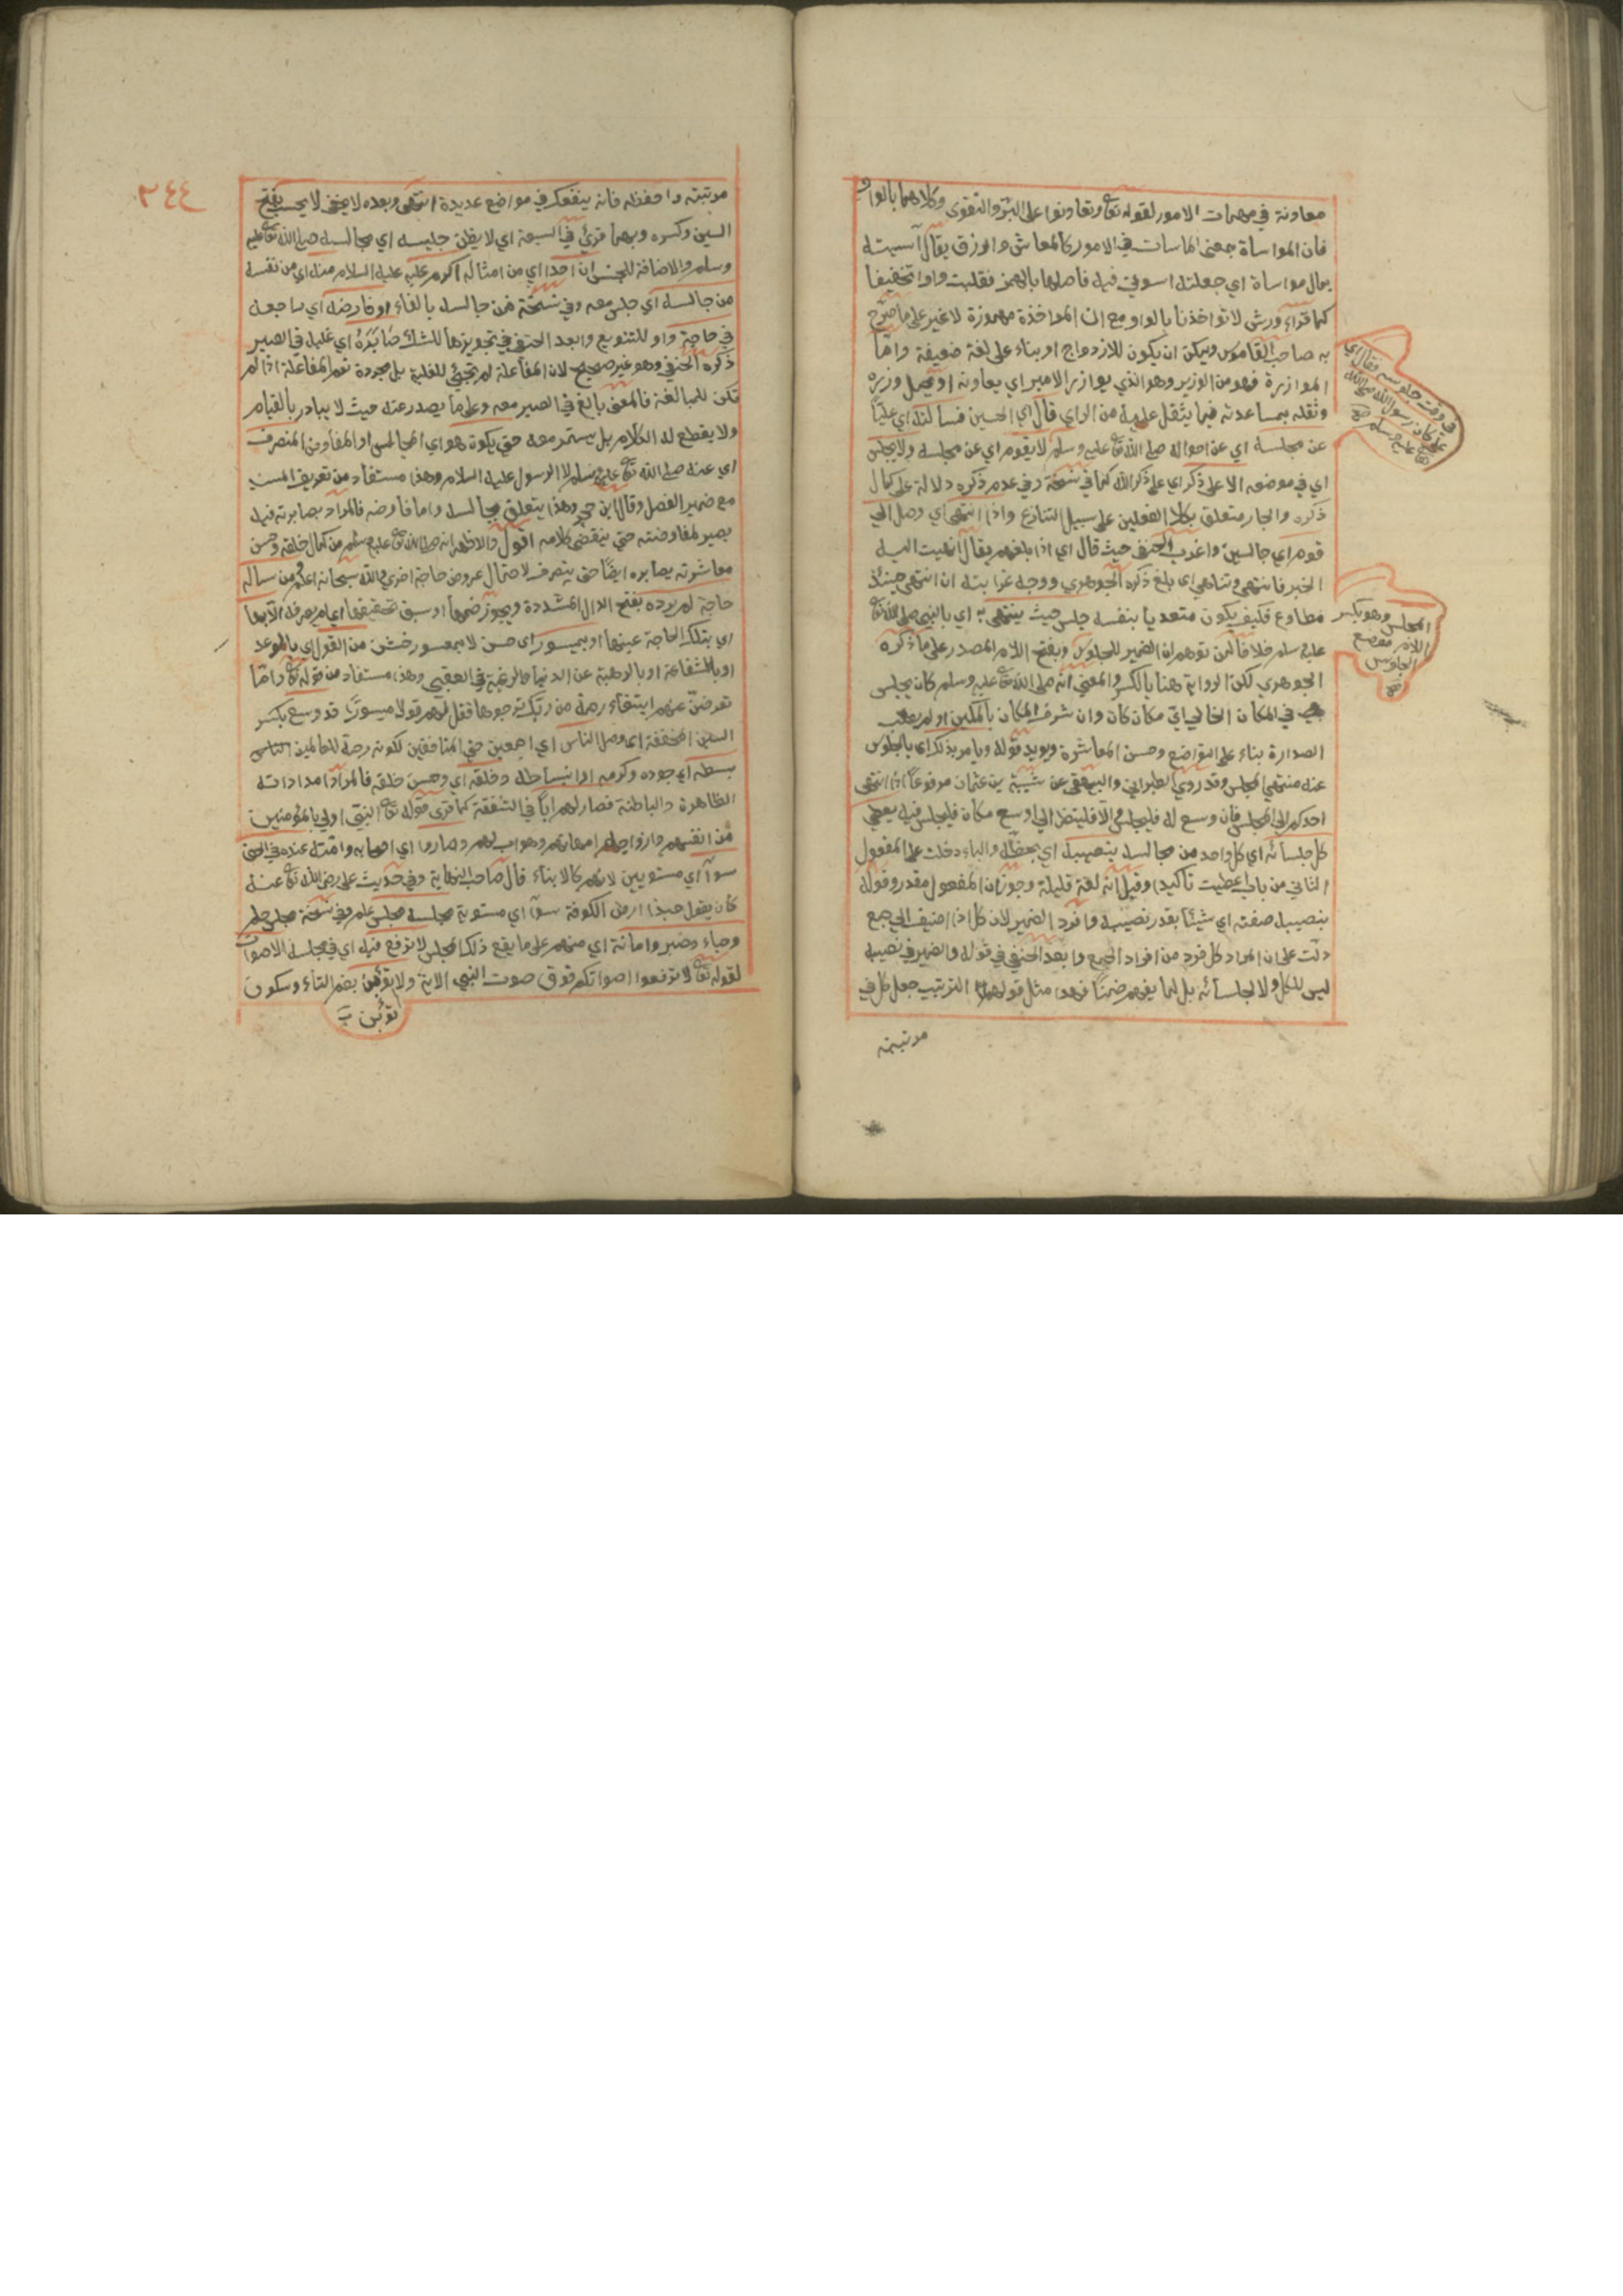 معاونة في مهمات الامور لقوله تعا وتعاونوا على البر والتقوى وكلاهما بالواو
فان المواساة جعنى الماسات في الامور كالمعاش والرزق يقال آسيته
بمال مواساة اي جعلته اسوتي فيه فاصلها بالهمز فقلبت واوا تخفيفا
كما قراء ورش لا تواخذنا بالواو مع ان المواخذة مهموزة لا غير على ما صرح
به صاحب القاموس ويمكن ان يكون للازدواج او بناء على لغة ضعيفة واما
الموازرة فهو من الوزير وهو الذي يوازر الامير اي يعاونه او يحمل وزره
وثقله بمساعدته فيما يثقل عليه من الراي قال اي الحسين فسألته اي عليا
في وقت جلوسه فقال اي علي كان رسول الله صلى الله تعا عليه وسلم صح
عن مجلسه اي عن احواله صلى الله تعا عليه وسلم لا يقوم اي عن مجلسه ولا يجلس
اي في موضعه الا على ذكر اي على ذكر الله كما في نسخة وفي عدم ذكره دلالة على كمال
ذكره والجار متعلق بكلا الفعلين على سبيل التنازع واذا انتهى اي وصل الي
قوم اي جالسين واغرب الحنفي حيث قال اي اذا بلغهم يقال انهيت اليه
الخبر فانتهى وتناهى اي بلغ ذكره الجوهري ووجه غرابته ان انتهى حينئذ
مطاوع فكيف يكون متعديا بنفسه جلس حيث ينتهي به اي بالنبي صلى الله تعا
المجلس وهو بكسر اللام موضع الجلوس صح
عليه وسلم خلافا لمن توهم ان الضمير للجلوس وبفتح اللام المصدر على ما ذكره
الجوهري لكن الرواية هنا بالكسر والمعنى انه صلى الله تعا عليه وسلم كان يجلس
في المكان الخالي اي مكان كان وان شرف المكان بالمكين او لم يطلب
الصدارة بناء على التواضع وحسن المعاشرة ويويد قوله ويامر بذلك اي بالجلوس
عند منتهى المجلس وقد روي الطبراني والبيهقي عن شيبة بن عثمان مرفوعا اذا انتهى
احدكم الى المجلس فان وسع له فليجلس والا فلينظر الي اوسع مكان فليجلس فيه يعطي
كل جلسائه اي كل واحد من مجالسيه بنصيبه اي بحظه والباء دخلت على المفعول
الثاني من باب اعطيت تاكيدا وقيل انه لغة قليلة وجوز ان المفعول مقدر وقوله
بنصيبه صفته اي شيئا بقدر نصيبه وافرد الضمير لان كل اذا اضيف الي جمع
دلت على ان المراد كل فرد من افراد الجمع وابعد الحنفي في قوله والضمير في نصيبه
ليس للكل ولا لجلسائه بل لما يفهم ضمنا فهذا مثل قولهم الترتيب جعل كل في
مرتبته
٣٤٤
مرتبته واحفظه فانه ينفعك في مواضع عديدة انتهى وبعده لا يخفى لا يحسب بفتح
السين وكسره وبهما قرئ في السبعة اي لا يظن جليسه اي مجالسيه صلى الله تعا عليه
وسلم والاضافة للجنس ان احدا اي من امثاله اكرم عليه عليه السلام منه اي من نفسه
من جالسه اي جلس معه وفي نسخة فمن جالسه بالفاء او فاوضه اي راجعه
في حاجة واو للتنويع وابعد الحنفي في تجويزها للشك صابره اي غلبه في الصبر
ذكره الحنفي وهو غير صحيح لان المفاعلة لم تجئ للغلبة بل مجردة نعم المفاعلة اذا لم
تكن للمبالغة فالمعنى بالغ في الصبر معه وعلى ما يصدر عنه حيث لا يبادر بالقيام
ولا يقطع له الكلام بل يستمر معه حتى يكون هو اي المجالس او المفاوض المنصرف
اي عنه صلى الله تعا عليه وسلم لا الرسول عليه السلام وهذا مستفاد من تعريف المسند
مع ضمير الفصل وقال ابن حجر وهذا يتعلق بمجالسه واما فاوضه فالمراد بصابرته فيه
يصير لمفاوضته حتى ينقضي كلامه اقول والاظهر انه صلى الله تعا عليه وسلم من كمال خلقه وحسن
معاشرته يصابره ايضا حتى ينصرف لاحتمال عروض حاجة اخرى والله سبحانه اعلم ومن ساله
حاجة لم يرده بفتح الدال المشددة ويجوز ضمها او سبق تحقيقها اي لم يصرفه الا بها
اي بتلك الحاجة عينها او بميسور اي حسن لا بمعسور خشن من القول اي بالموعد
او بالشفاعة او بالرهبة عن الدنيا والرغبة في العقبى وهذا مستفاد من قوله تعا واما
تعرضن عنهم ابتغاء رحمة من ربك ترجوها فقل لهم قولا ميسورا قد وسع بكسر
السين المخففة اي وصل الناس اي اجمعين حتى المنافقين لكونه رحمة للعالمين الناس
بسطه اي جوده وكرمه او انبساطه وخلقه اي وحسن خلقه فالمراد امداداته
الظاهرة والباطنة فصار لهم ابا في الشفقة كما قرئ قوله تعا النبي اولي بالمؤمنين
من انفسهم وازواجه امهاتهم وهو اب لهم وصاروا اي اصحابه وامته عنده في الحق
سوآء اي مستويين لانهم كالابناء قال صاحب النهاية وفي حديث علي رضي الله تعا عنه
كان يقول حبذا ارض الكوفة سوآء اي مستوية مجلسه مجلس علم وفي نسخة مجلس حلم
وحياء وصبر وامانة اي منهم على ما يقع ذلك المجلس لا ترفع فيه اي في مجلسه الاصوات
لقوله تعا لا ترفعوا اصواتكم فوق صوت النبي الآية ولا تؤبن بضم التاء وسكون
تؤبن